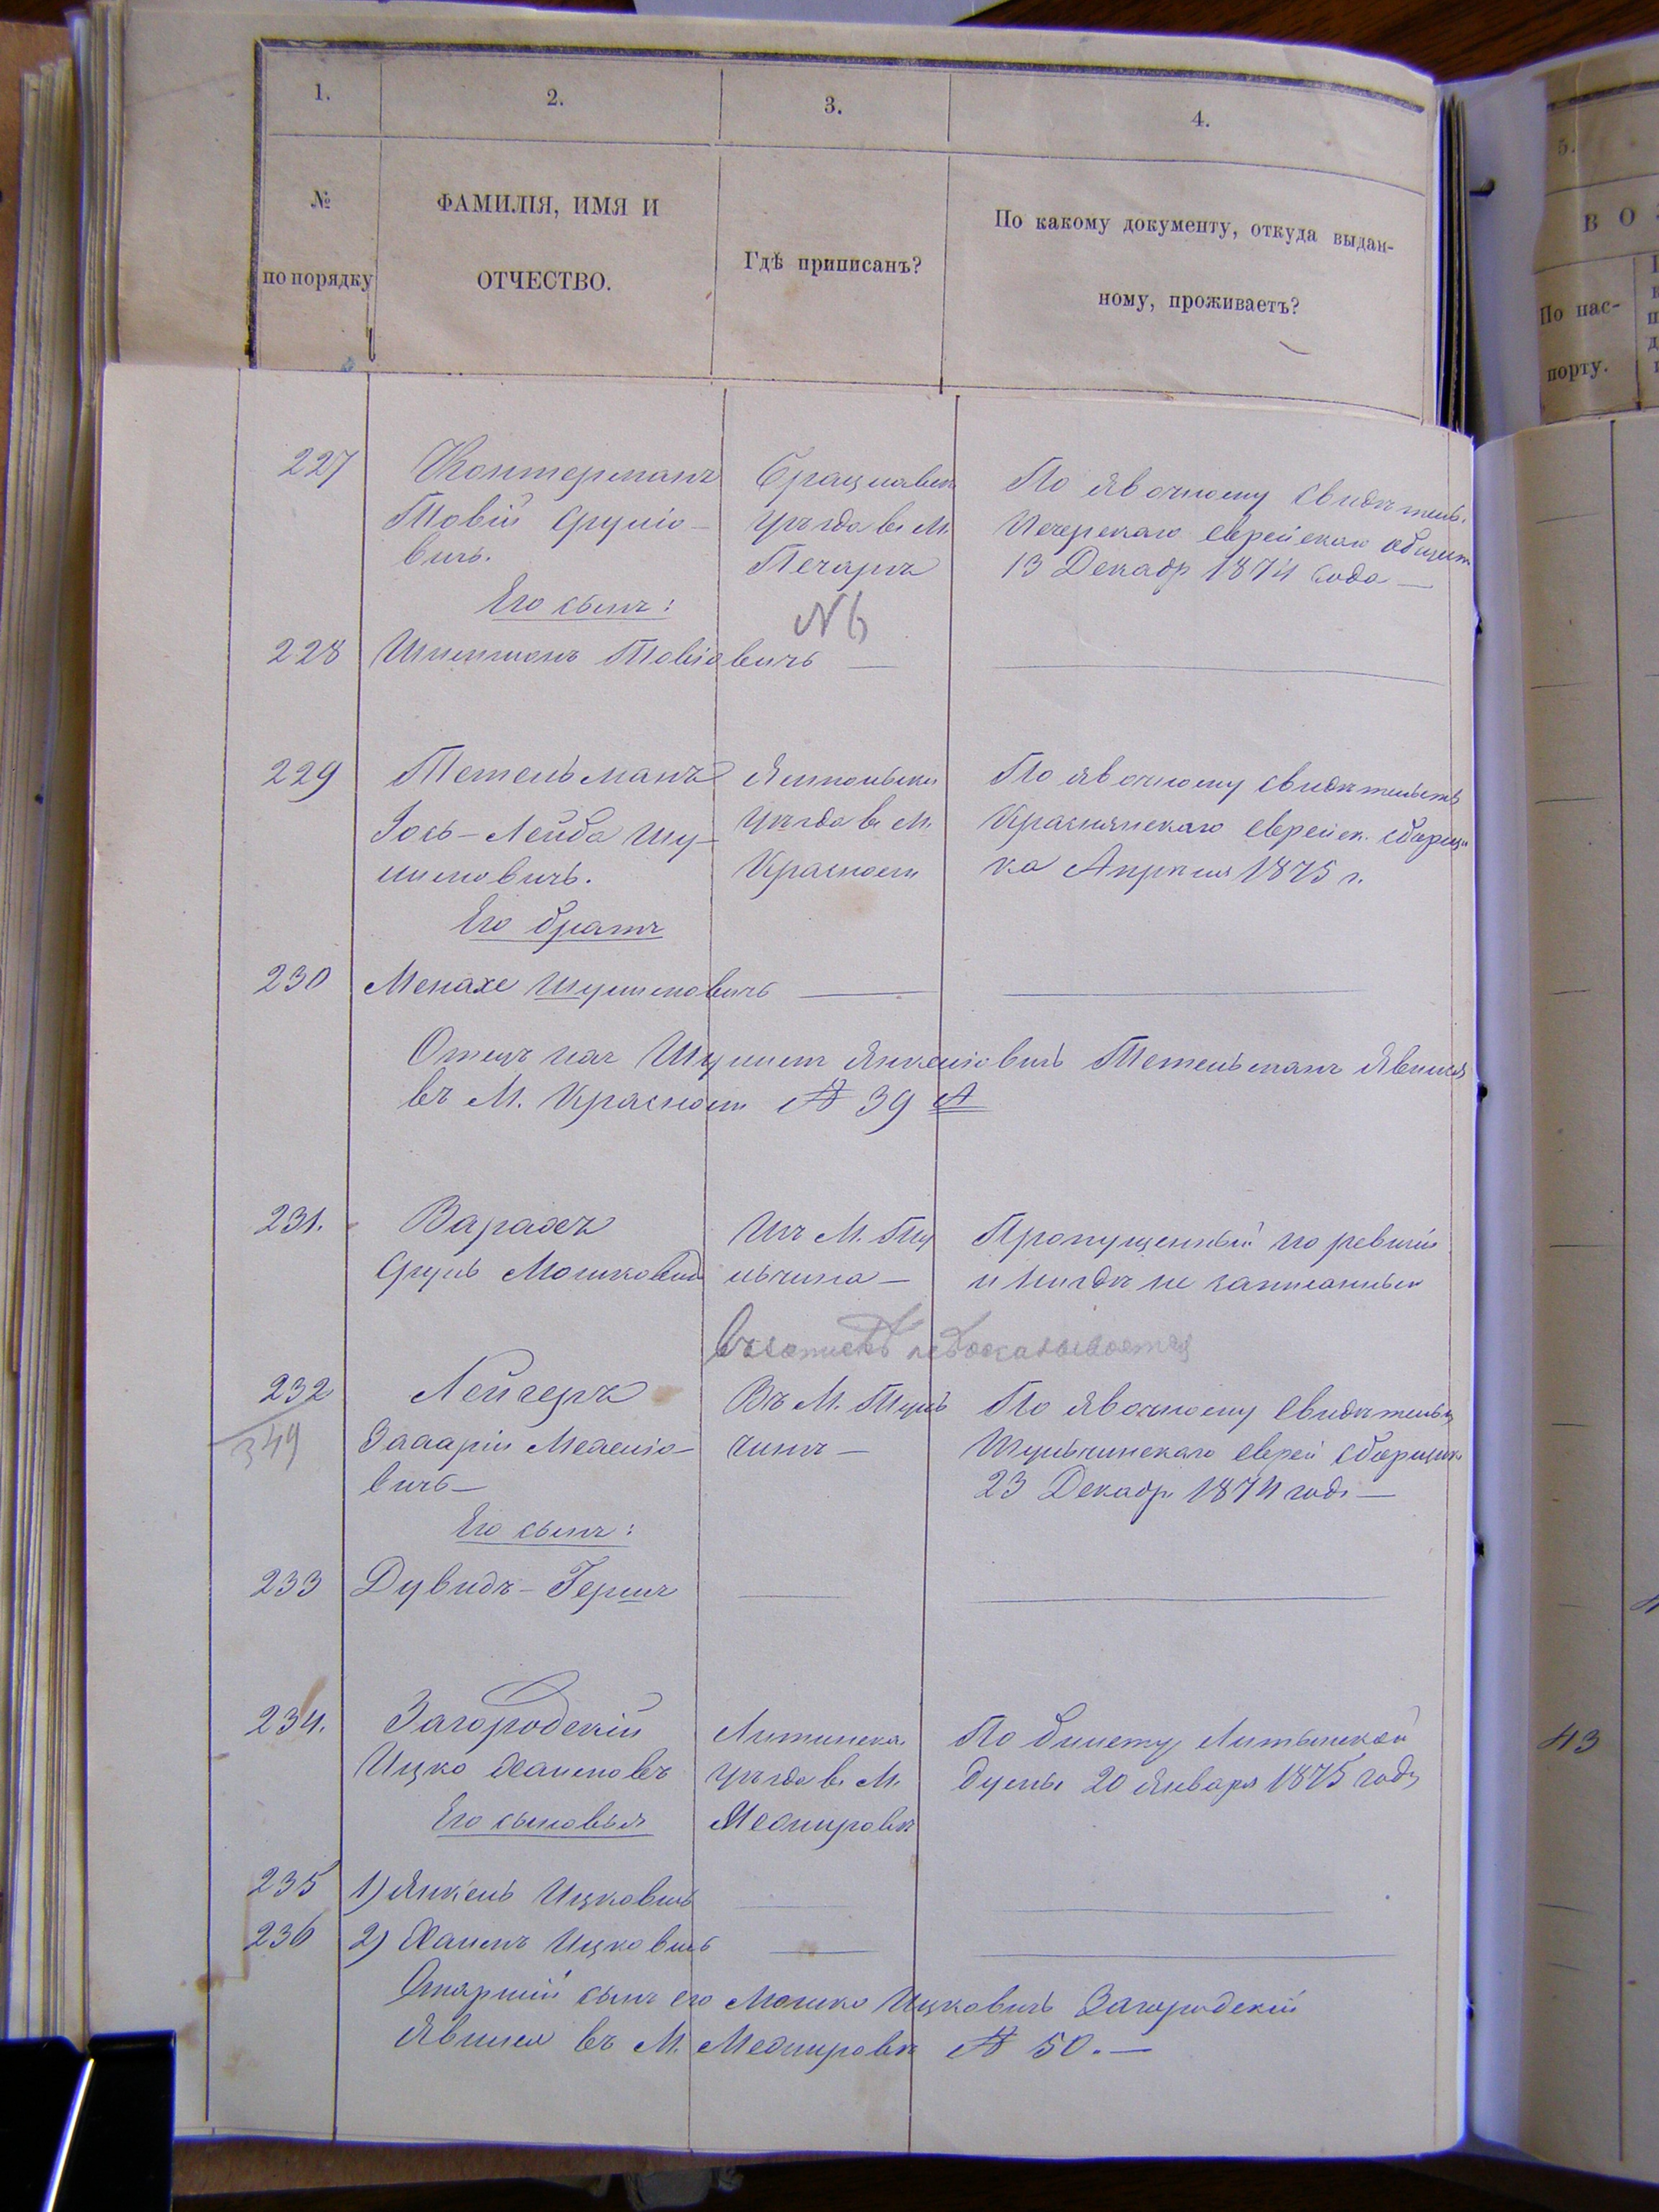 1.
2.
3.
4.
№
по порядку
ФАМИЛІЯ, ИМЯ И
ОТЧЕСТВО.
Гдѣ приписанъ?
По какому документу, откуда выдан-
ному, проживаетъ?
5.
В О
По пас-
порту.
227
Контерманъ
Товій Сруліо-
вичъ.
Его сынъ:
Брацлавск
уѣзда въ М.
Печарѣ
№ 6
По явочному свидѣтель.
Печерскаго еврейскаго общест
13 Декабр 1874 года —
228 Шлемонъ Товіовичъ —
229
Тетельманъ
Іось-Лейба Шу-
лимовичъ.
Его братъ
Ямпольск
уѣзда въ М.
Красномъ
По явочному свидѣтельств
Краснянскаго еврейск. сборщи
ка Апрѣля 1875 г.
230 Менахе Шулимовичъ —
Отецъ ихъ Шулимъ Янкеліовичъ Тетельманъ явился
въ М. Красномъ № 39 А
231.
Варахъ
Сруль Мошковичъ
Изъ М. Ту
льчина —
Пропущенный по ревизіи
и нигдѣ не записанный
232
349
Лейгеръ
Захарій Мехеліо-
вичъ —
Его сынъ:
Въ М. Туль
чинѣ —
По явочному свидѣтельс
Тульчинскаго еврей сборщик
23 Декабр 1874 год —
233 Дувидъ-Гершъ
234.
Загородскій
Ицко Хаимовъ
Его сыновья
Литинска.
уѣзда въ М.
Межировѣ
По билету Литынской
думы 20 Января 1875 года
235 1) Янкель Ицковичъ
236 2) Хаимъ Ицковичъ
Старшій сынъ его Мошко Ицковичъ Загородскій
явился въ М. Межировѣ № 50. —
43